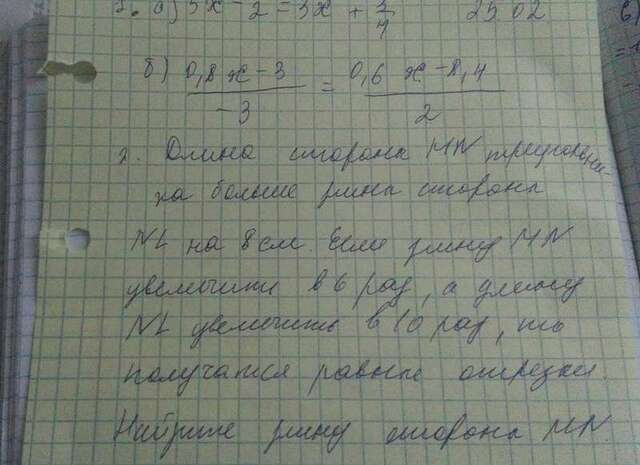 1. а) 5x - 2 = 3x + 3/4 25 02
б) 0,8x - 3 / -3 = 0,6 x - 8,4 / 2
2. Длина стороны MN треугольни-
ка больше длины стороны
NL на 8 см. Если длину MN
увеличить в 6 раз, а длину
NL увеличить в 10 раз, то
получатся равные отрезки.
Найдите длину стороны MN